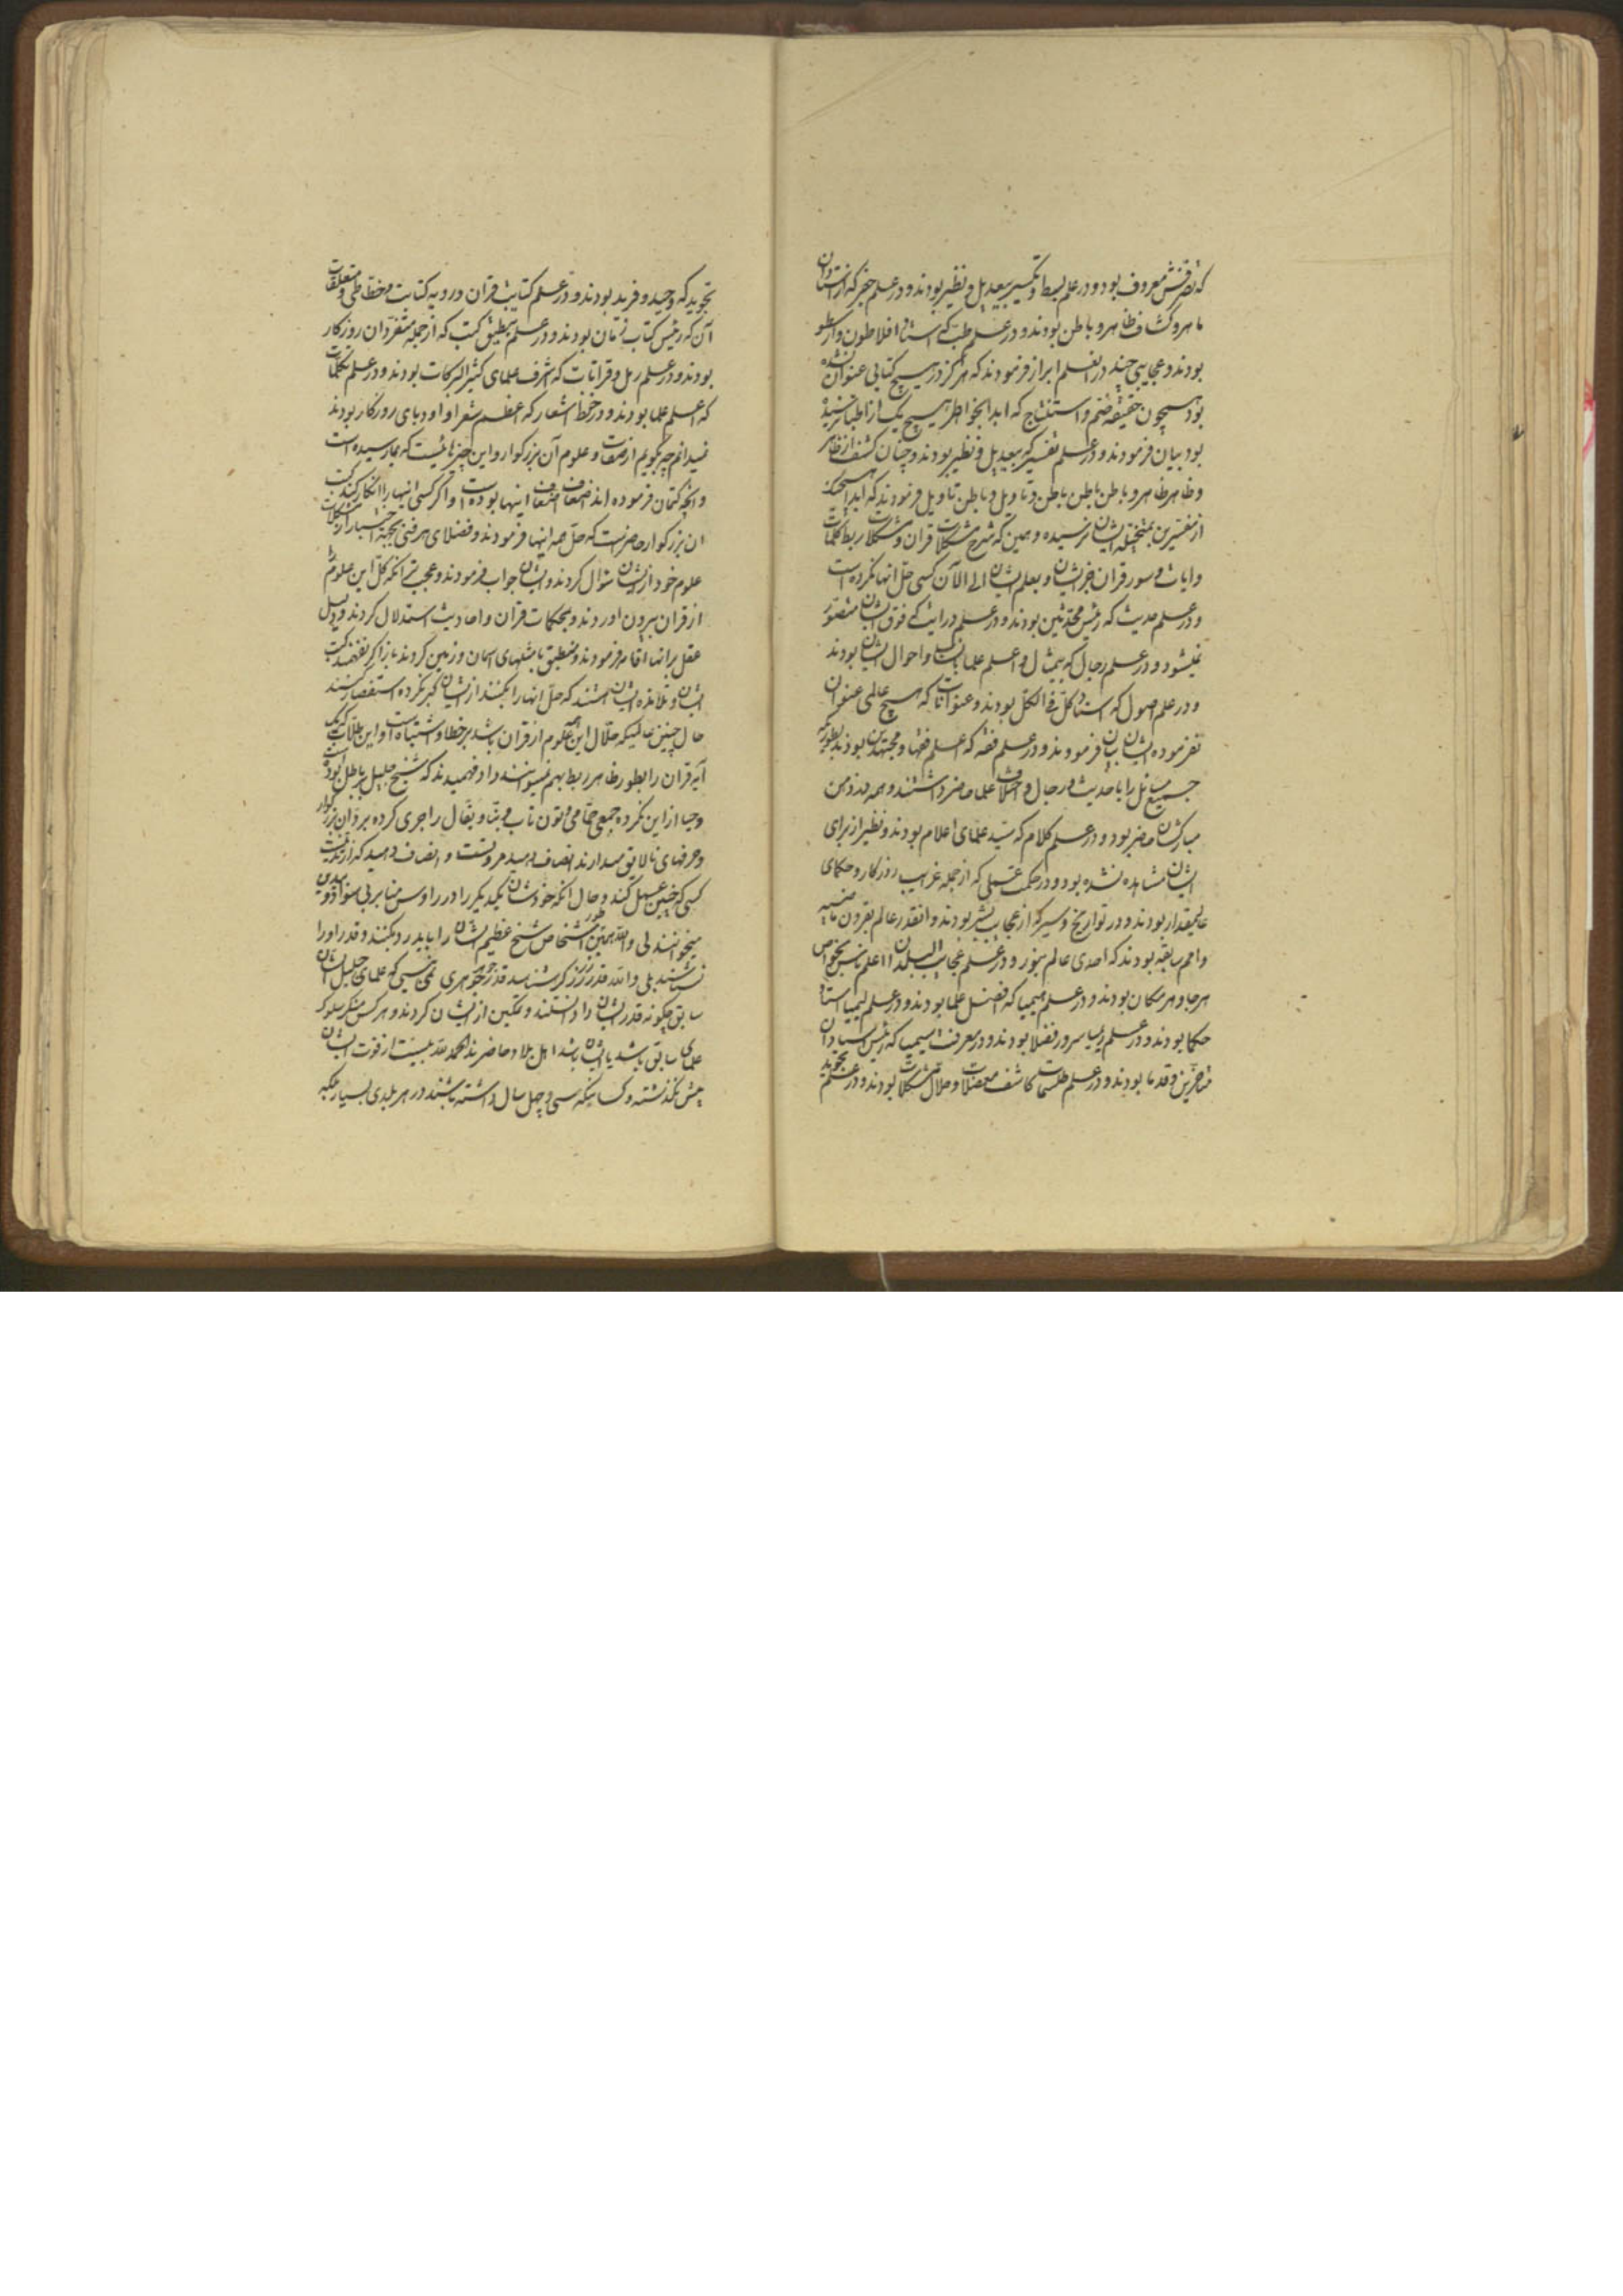 که تصرفش معروف بود و در علم بسط و تکسیر بیعدیل و نظیر بودند و در علم جفر که از استادان
ماهر و کشاف ظاهر و باطن بودند و در علم طب که استاد افلاطون و ارسطو
بودند و عجایبی چند در انعلم ابراز فرمودند که هرگز در هیچ کتابی عنوان نشده
بود همچون حقیقة هضم و استنتاج که ابدا بخواطر هیچ یک از اطبا نرسیده
بود بیان فرمودند و در علم تفسیر که بیعدیل و نظیر بودند و چنان کشف از ظاهر
و ظاهر ظاهر و باطن باطن و تاویل و باطن تاویل فرمودند که ابدا هیچیک
از مفسرین بمتخیله ایشان نرسیده و همین که شرح مشکلات قران و مشکلات ربط کلمات
و ایات و سور قران فخر ایشان و بعلم ایشان الی الآن کسی حل انها نکرده است
و در علم حدیث که رئیس محدثین بودند و در علم درایت که فوق ایشان متصور
نمیشود و در علم رجال که بیمثال و اعلم علما بانساب و احوال ایشان بودند
و در علم اصول که استاد کل فی الکل بودند و عنوانات که هیچ عالمی عنوان
نفرموده ایشان بیان فرمودند و در علم فقه که اعلم فقها و مجتهدین بودند بطوریکه
جمیع مسائل را با حدیث و رجال و اختلاف علما حاضر داشتند و همه در ذهن
مبارکشان حاضر بود و در علم کلام که سید علمای اعلام بودند و نظیر از برای
ایشان مشاهده نشده بود و در حکمت عملی که از جمله غرایب روزکار و حکمای
عالیمقدار بودند و در تواریخ و سیر که از عجایب بشر بودند و انقدر عالم بقرون ماضیه
و امم سابقه بودند که احدی عالم نبود و در علم عجایب البلدان اعلم ناس بخواص
هر جا و هر مکان بودند و در علم هیمیا که افضل علما بودند و در علم لیمیا استاد
حکما بودند و در علم ریمیا سرور فضلا بودند و در معرفت سیمیا که رئیس استادان
متاخرین و قدما بودند و در علم طلسمات کاشف معضلات و حلال مشکلات بودند و در علم تجوید
تجوید که وحید و فرید بودند و در علم کتابت قران و رویه کتابت و خطاطی و متعلقات
آن که رئیس کتاب زمان بودند و در علم تطبیق کتب که از جمله متفردان روزکار
بودند و در علم رمل و قرانات که اشرف علمای کثیر البرکات بودند و در علم نکات
که اعلم علما بودند و در حفظ اشعار که اعظم شعرا و ادبای روزکار بودند
نمیدانم چه بگویم از صفات و علوم آن بزرکوار و این چیزهائیست که بما رسیده است
و انچه کتمان فرموده اند اضعاف اضعاف اینها بوده است و اگر کسی انیها را انکار کند کتب
ان بزرکوار حاضر است که حل همه انها فرمودند و فضلای هر فنی بجهة اختبار از مشکلات
علوم خود از ایشان سؤال کردند و ایشان جواب فرمودند و عجیب تر انکه کل این علوم را
از قران بیرون اوردند و بمحکمات قران و احادیث استدلال کردند و دلیل
عقل بر انها اقامه فرمودند و منطبق با مثلهای اسمان و زمین کردند باز اگر نفهمند کتب
ایشان و تلامذه ایشان هستند که حل انها را بکنند از ایشان کبر نکرده استفسار کنند
حال چنین عالمیکه حلال این همه علوم از قران باشد بر خطا و اشتباه است و این طلاب که یک
آیه قران را بطور ظاهر ربط بهم نمیتوانند داد فهمیدند که شیخ جلیل بر باطل بوده است
و حیا از این نکرده جمعی حمامی و تون تاب و بنا و بقال را جری کرده بر دان بزرکوار
و حرفهای نالایق میدارند انصاف دهید مروتست و انصاف دهید که از تدینست
کسی که چنین عمل کند و حال انکه خودشان یکدیگر را در رؤس منابر بی سواد و بیدین
میخوانند بلی و الله همین طور اشخاص شیخ عظیم الشان را باید رد بکنند و قدر او را
نشناسند بلی و الله قدر زر زرگر شناسد قدر جوهر جوهری نمی بینی که علمای جلیل الشان
سابق چگونه قدر ایشان را دانستند و تمکین از ایشان کردند و هر کس منکر سلوک
علمای سابق باشد یا ایشان باشد اهل بلاد حاضرند الحمد لله بیست از فوت ایشان
بیش نگذشته و کسانیکه سی و چهل سال داشته باشند در هر بلدی بسیار بلکه